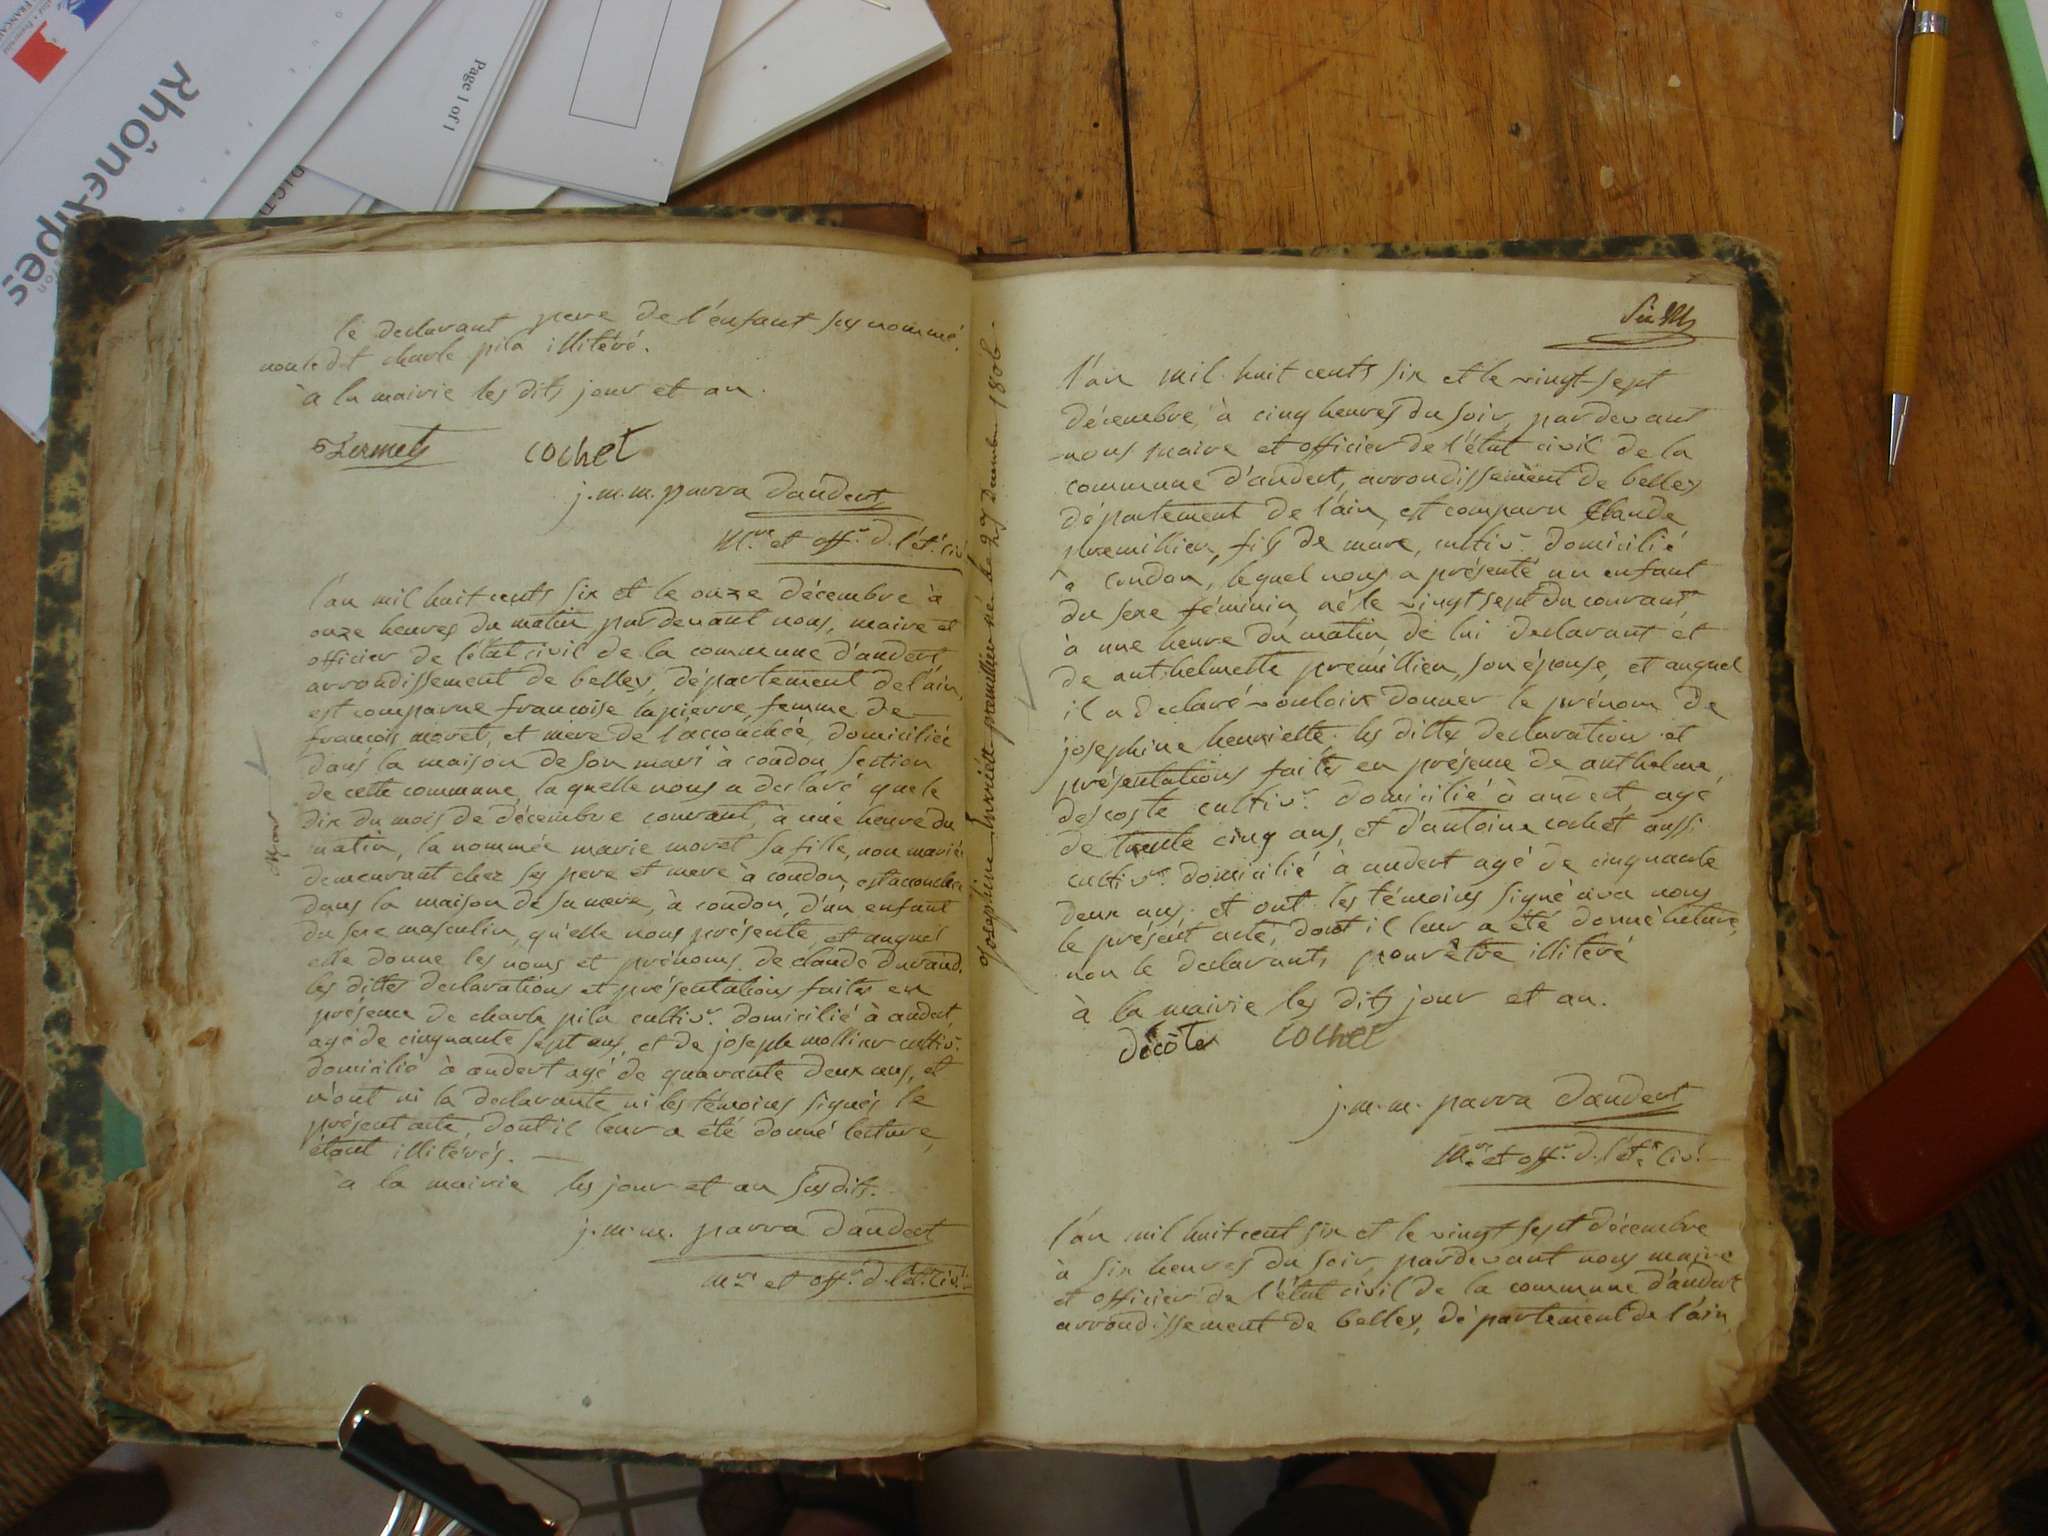 Rhône-Alpes
Page 1 of 1
le declarant pere de l'enfant sus nommé.
non le dt charle pila illitéré.
à la mairie les dits jour et an.
cochet
j.m.m. parra dandert
M.re et off.r d. l'ét. civ.
l'an mil huit cents six et le onze décembre à
onze heures du matin pardevant nous, maire et
officier de l'état civil de la commune d'andert
arrondissement de belley, département de l'ain,
est comparue francoise lapierre, femme de
francois moret, et mère de l'accouchée, domiciliée
dans la maison de son mari à coudon section
de cette commune, la quelle nous a declaré que le
dix du mois de décembre courant, à une heure du
matin, la nommée marie moret sa fille, non mariée
demeurant chez ses pere et mere à coudon, est accouchée
dans la maison de sa mere, à coudon, d'un enfant
du sexe masculin, qu'elle nous présente, et auquel
elle donne les noms et prénoms de claude durand.
les dittes declarations et présentations faites en
présence de charle pila cultiv.r domicilié à andert
agé de cinquante sept ans, et de joseph mollier cultiv.r
domicilié à andert agé de quarante deux ans, et
n'ont ni la declarante ni les témoins signés le
présent acte, dont il leur a été donné lecture,
étant illitérés.
à la mairie les jour et an susdits.
j.m.m. parra dandert
M.re et off.r d. l'ét. civ.
Josephine henriette premillieu né le 27 Decembre 1806
l'an mil huit cents six et le vingt-sept
décembre à cinq heures du soir, pardevant
nous maire et officier de l'état civil de la
commune d'andert, arrondissement de belley
département de l'ain, est comparu Claude
premillieu, fils de marc, cultiv.r domicilié
à coudon, lequel nous a présenté un enfant
du sexe féminin né le vingt sept du courant,
à une heure du matin de lui declarant et
de anthelmette premillieu, son épouse, et auquel
il a declaré vouloir donner le prénom de
josephine henriette. les dittes declaration et
présentations faites en présence de anthelme
descoste cultiv.r domicilié à andert agé
de trente cinq ans, et d'antoine cochet aussi
cultiv.r domicilié à andert agé de cinquante
deux ans, et ont les témoins signé avec nous
le présent acte, dont il leur a été donné lecture,
non le declarant, pour être illitéré
à la mairie les dits jour et an.
décôte cochet
j.m.m. parra dandert
M.re et off.r d. l'ét. civ.
l'an mil huit cent six et le vingt sept décembre
à six heures du soir, pardevant nous maire
et officier de l'état civil de la commune d'andert
arrondissement de belley, département de l'ain,